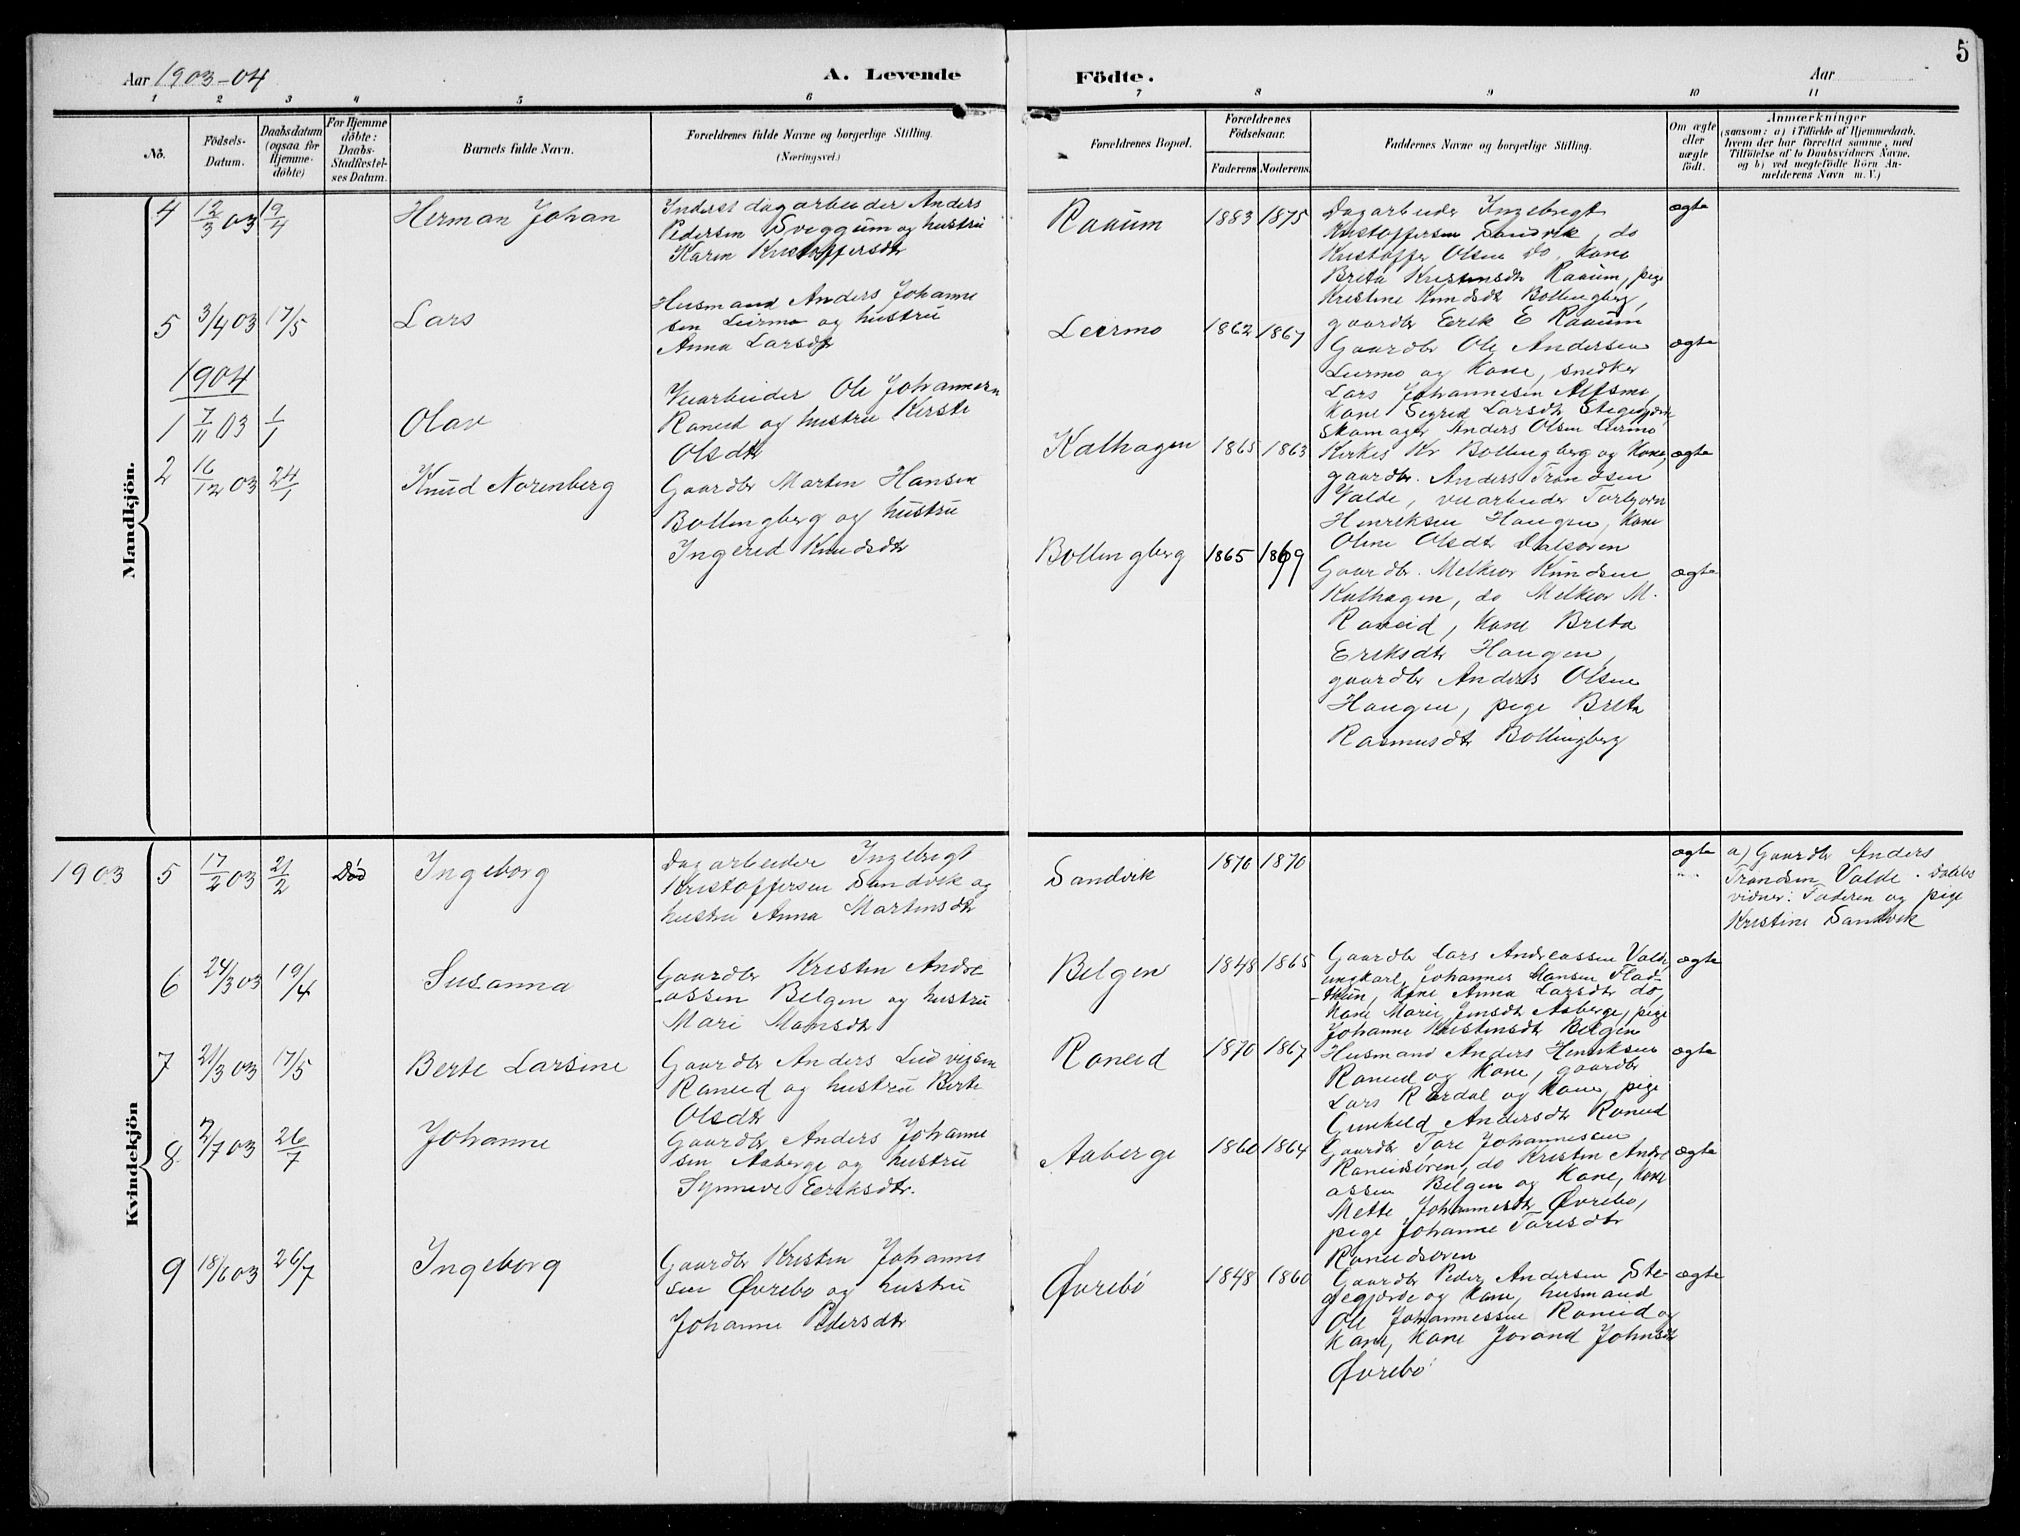 5
Aar 1903-04
A. Levende
Födte.
Aar
1 2 3 4 5 6 7 8 9 10 11
No.
Födsels-
Datum.
Daabsdatum
(ogsaa for
Hjemme-
döbte)
For Hjemme
döbte:
Daabs-
Stadfæstel-
ses Datum.
Barnets fulde Navn.
Forældrenes fulde Navne og borgerlige Stilling.
(Næringsvei.)
Forældrenes Bopæl.
Forældrenes
Födselsaar.
Faderens Moderens
Faddernes Navne og borgerlige Stilling.
Om ægte
eller
uægte
födt.
Anmærkninger
(saasom: a) i Tilfælde af Hjemmedaab,
hvem der har forrettet samme, med
Tilföielse af to Daabsvidners Navne,
og b) ved uegtefödte Börn An-
melderens Navn m. V.)
Mandkjön.
4 12/3 03 19/4
Herman Johan
Inderst dagarbeider Anders
Pedersen Sveggum og hustru
Karen Kristoffersdtr
Raaum
1883 1875
Dagarbeider Ingebrigt
Kristoffersen Sandvik, do
Kristoffer Olsen do, kone
Breta Kristensdtr Raaum, pige
Kristine Knudsdtr Bollingberg,
gaardbr Erik E Raaum
ægte
5 3/4 03 17/5
Lars
Husmand Anders Johanne
sen Leirmo og hustru
Anna Larsdtr
Leirmo
1862 1867
Gaardbr Ole Andersen
Leirmo og Kone, snedker
Lars Johannesen Alfsmo,
Kone Sigrid Larsdtr Stegegjerde,
Skomager Anders Olsen Leirmo
ægte
1904
1 7/11 03 1/1
Olav
Veiarbeider Ole Johannesen
Raneid og hustru Kirsti
Olsdtr
Kalhagen
1865 1863
Kirkes Kr Bollingberg og Kone,
gaardbr. Anders Trondsen
Valde, veiarbeider Torbjørn
Henriksen Haugen, Kone
Oline Olsdtr Dalsøren
ægte
2 16/12 03 24/1
Knud Norenberg
Gaardbr Martin Hansen
Bollingberg og hustru
Ingerid Knudsdtr
Bollingberg
1865 1869
Gaardbr. Melkior Knudsen
Kalhagen, do Melkior M.
Raneid, Kone Breta
Eriksdtr Haugen,
gaardbr Anders Olsen
Haugen, pige Breta
Rasmusdtr Bollingberg
ægte
Kvindekjön
1903
5 17/2 03 21/2
Død
Ingeborg
Dagarbeider Ingebrigt
Kristoffersen Sandvik og
hustru Anna Martinsdtr
Sandvik
1870 1870
ægte
" "
a) Gaardbr Anders
Trondsen Valde. Daabs
vidner: Faderen og pige
Kristine Sandvik
6 24/3 03 19/4
Susanna
Gaardbr Kristen Andre
assen Belgen og hustru
Mari Monsdtr
Belgen
1848 1865
Gaardbr Lars Andreassen Valde,
ungkarl Johannes Hansen Flad-
-hun, kone Anna Larsdtr do,
Kone Marie Jensdtr Aaberge, pige
Johanne Kristensdtr Belgen
ægte
7 21/3 03 17/5
Berte Larsine
Gaardbr Anders Ludvigsen
Raneid og hustru Berte
Olsdtr
Raneid
1870 1867
Husmand Anders Henriksen
Raneid og Kone, gaardbr
Lars Rørdal og Kone, pige
Gunhild Andersdtr Raneid
ægte
8 2/7 03 26/7
Johanne
Gaardbr Anders Johanne
sen Aaberge og hustru
Synneve Eeriksdtr.
Aaberge
1860 1864
Gaardbr Tore Johannesen
Raneidsøren, do Kristen Andre
assen Belgen og Kone, Kone
Mette Johannesdtr Øvrebø,
pige Johanne Toresdtr
Raneidsøren
ægte
9 18/6 03 26/7
Ingeborg
Gaardbr Kristen Johanne
sen Øvrebø og hustru
Johanne Pedersdtr
Øvrebö
1848 1860
Gaardbr Peder Andersen Ste-
gegjerde og Kone, husmand
Ole Johannessen Raneid og
Kone, Kone Jorand Johnsdtr
Øvrebø
ægte